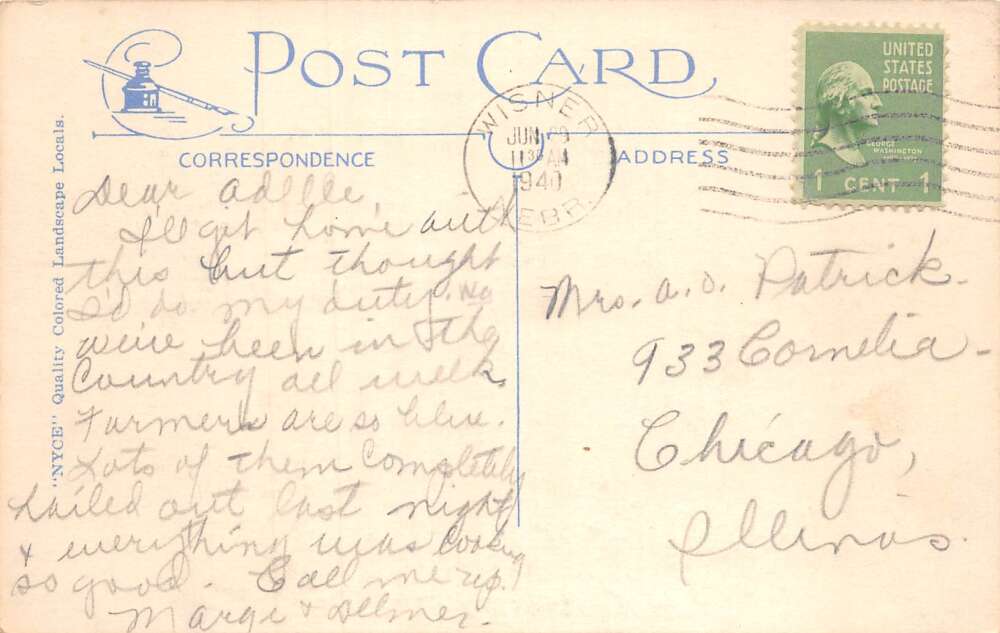 POST CARD
CORRESPONDENCE
ADDRESS
"NYCE" Quality Colored Landscape Locals.
WISNER
JUN 
11 30 AM
1940
NEBR.
UNITED
STATES
POSTAGE
GEORGE
WASHINGTON
1 CENT 1
Dear Adelle,
I'll get home with
this but thought
I'd do my duty. No
we've been in the
Country all week.
Farmers are so blue.
Lots of them Completely
hailed out last night
& everything was looking
so good. Call me up.
Marge & Delmer.
Mrs. A.O. Patrick.
933 Cornelia -
Chicago,
Illinois.